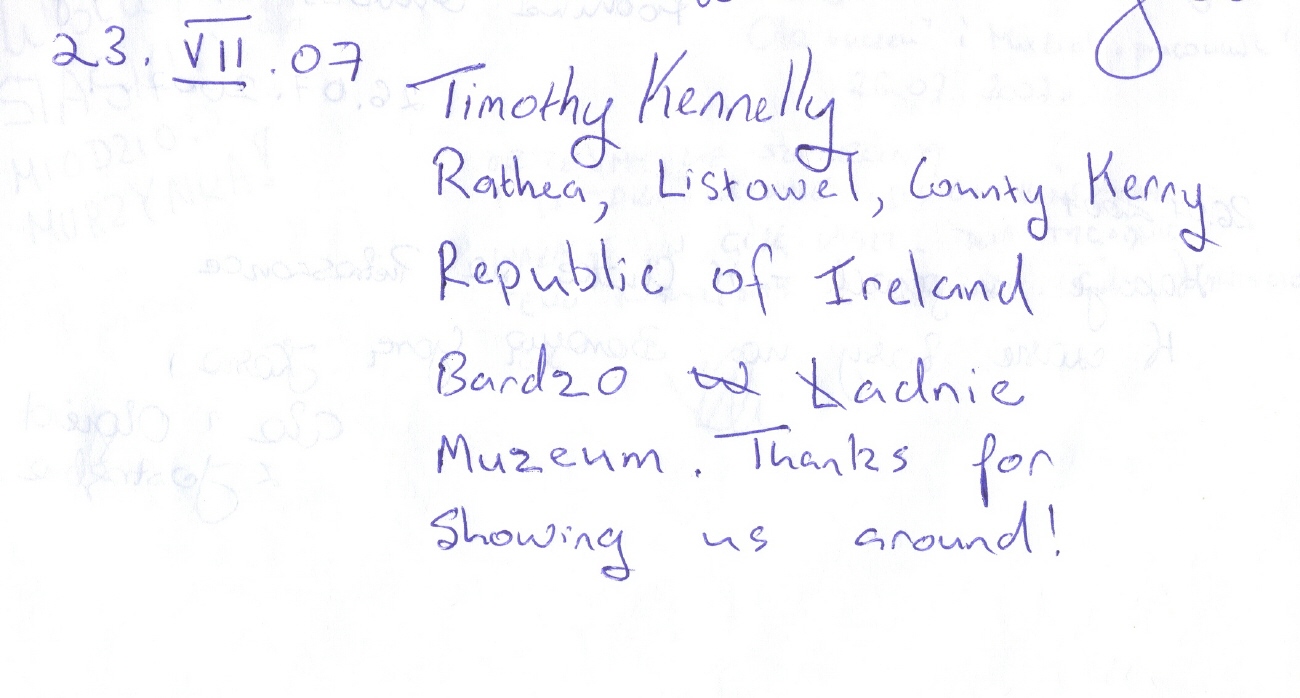 23. VII. 07
Timothy Kennelly
Rathea, Listowel, County Kerry
Republic of Ireland
Bardzo Ładnie
Muzeum. Thanks for
Showing us around!